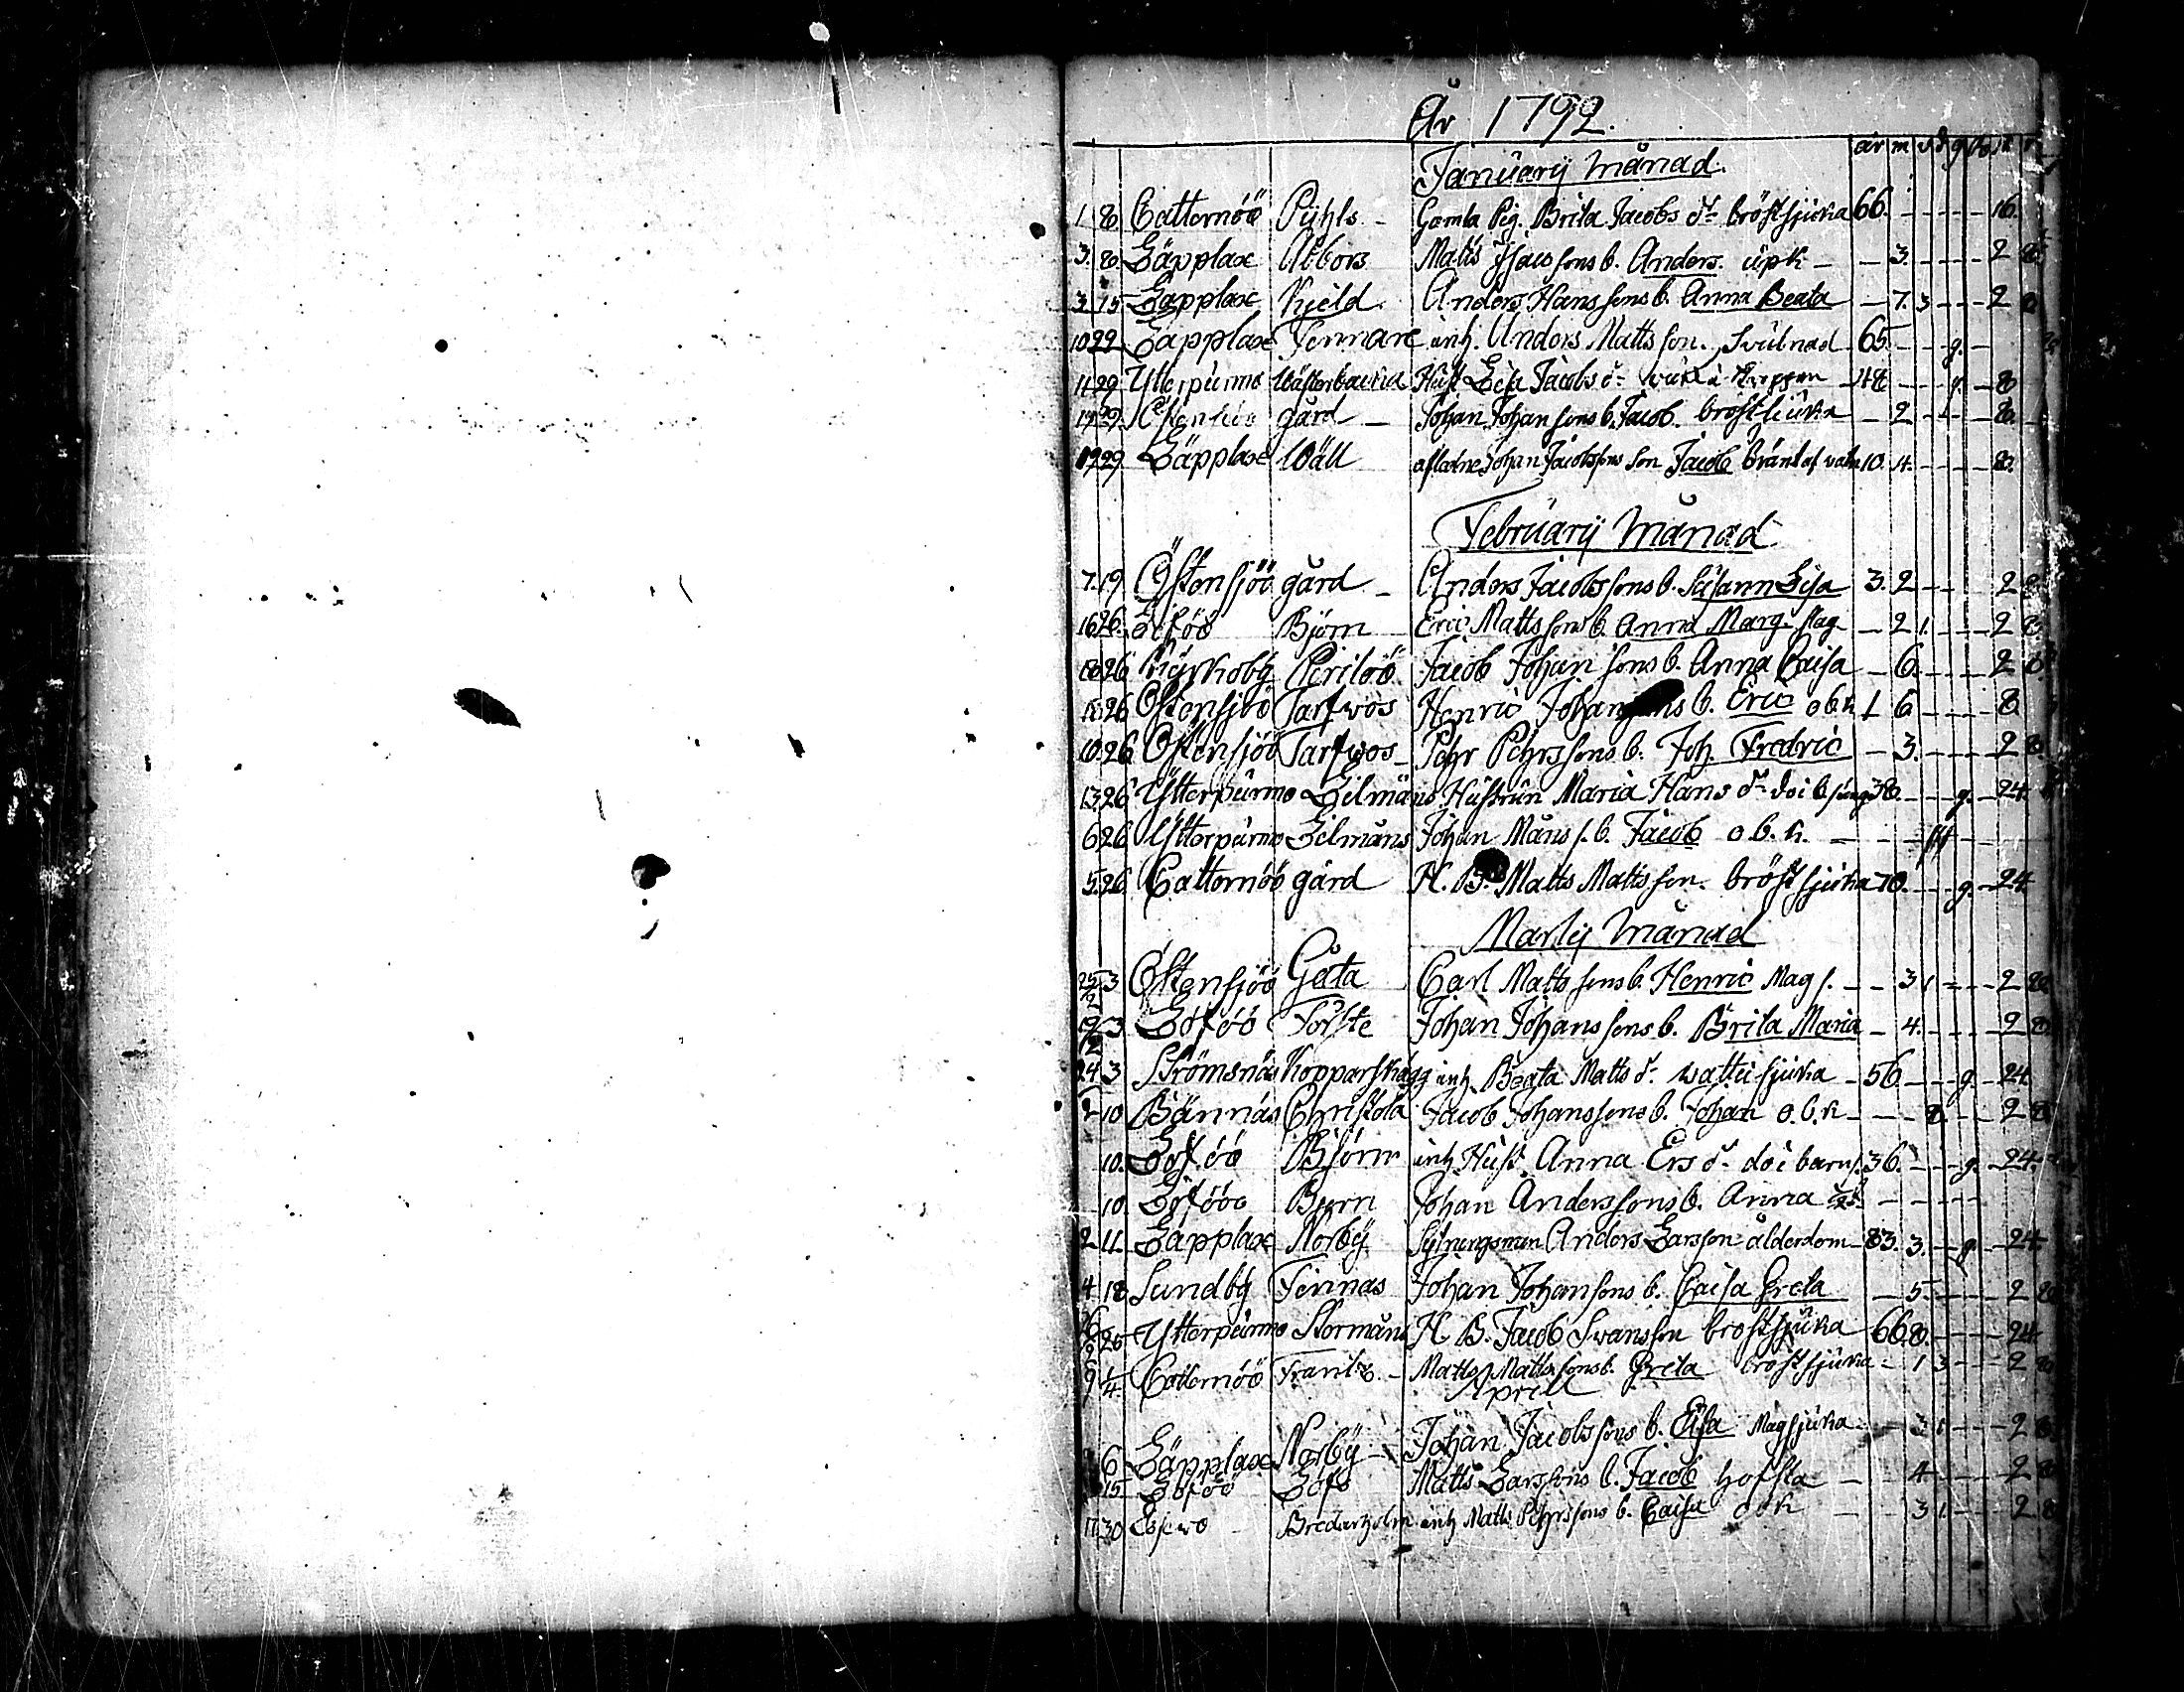 År 1792.
år m v d g
Januarij Månad.
1 8 Cattornöö Pyhls - Gamla Pig. Brita Jacobs dr bröstsjuka 66. - - - - 16.
3. 8. Läpplax Abbors Matts Isacssons b. Anders. upk - - 3. - - - - 2 8
3. 15 Läpplax Kjeld Anders Hanssons b. Anna Beata - 7. 3 - - - 2 8
10 22 Läpplax Tennare inh. Anders Matts son. Svulnad 65. - - g. -
11 29 Ytterpurmo Wästerbacka Hust Lisa Jacobs dr 48 - - - g. - 8
29 gård - Johan Johan sons b. Jacob bröstsjuka - 2 - - - 8.
19 29 Läpplax Wäll afledne Johan Jacobssons son Jacob bränd af vatn 10. 4. - - - - 8.
Februarij Månad
7. 19 Östensjöö gård - Anders Jacobssons b. Susann Lisa 3. 2 - - - 2 8
16 26. Björn Eric Mattssons b. Anna Marg. slag - 2 1. - - - 2 8
18 26 Kyrkoby Pirilöö Jacob Johan sons b. Anna Caisa - 6. - - - - 2 8
26 Östensjöö Tarfwos Henric Johan sons b. Eric obk 1 6 - - - - 8
10. 26 Östensjöö Tarfwos - Pehr Pehrssons b. Joh. Fredric - 3. - - - - 2 8
13 26 Ytterpurmo Lilmäns Hustrun Maria Hans dr do i b. säng 38. - - - g. - 24.
6 26 Ytterpurmo Lilmåns Johan Månss. b. Jacob o.b.k. - - - 14 - -
5. 26 Cattornöö gård H. B. Matts Matts son. bröstsjuka 70. - - - g. - 24.
Martij Månad
25/2 3 Östensjöö Gäta Carl Matts sons b. Henric Mag s. - - 3 1 - - - 2 8
19/2 3 Löföö Forste Johan Johans sons b. Brita Maria - 4. - - - - 2 8
24 3 Strömsnäs Kopparskägg inh. Beata Matts dr wattusjuka - 56. - - - g. - 24
10 Bännäs Christola Jacob Johanssons b. Johan o.b.k - - - 8. - - 2 8
10. Löföö Björn inh. Hust. Anna Ers dr do i barns. 36. - - - g. - 24.
10. Löföö Björn Johan Anderssons b. Anna - - - - -
2 11 Läpplax Norby Sytningsman Anders Larsson ålderdom - 83. 3. - g. - 24.
4 18 Sundby Tennas Johan Johansons b. Caisa Greta - 5. - - - - 2 8
25 Ytterpurmo Stormåns H B. Jacob Swansson bröstsjuka 66. 8. - - - - 24
9 1/4 Cattornöö Frantz. - Matts Mattssons b. Greta bröstsjuka - 1 3 - - - 2 8
Aprill
6 Läpplax Norby - Johan Jacobssons b. Lisa Magsjuka - 3 1 - - - 2 8
15 Löföö Löfö Matts Larssons b. Jacob hosta - - 4 - - - - 2 8
17. 30 Esswo - Bredarholm inh Matts Pehrssons b. Caisa obk - - 3 1. - - - 2 8